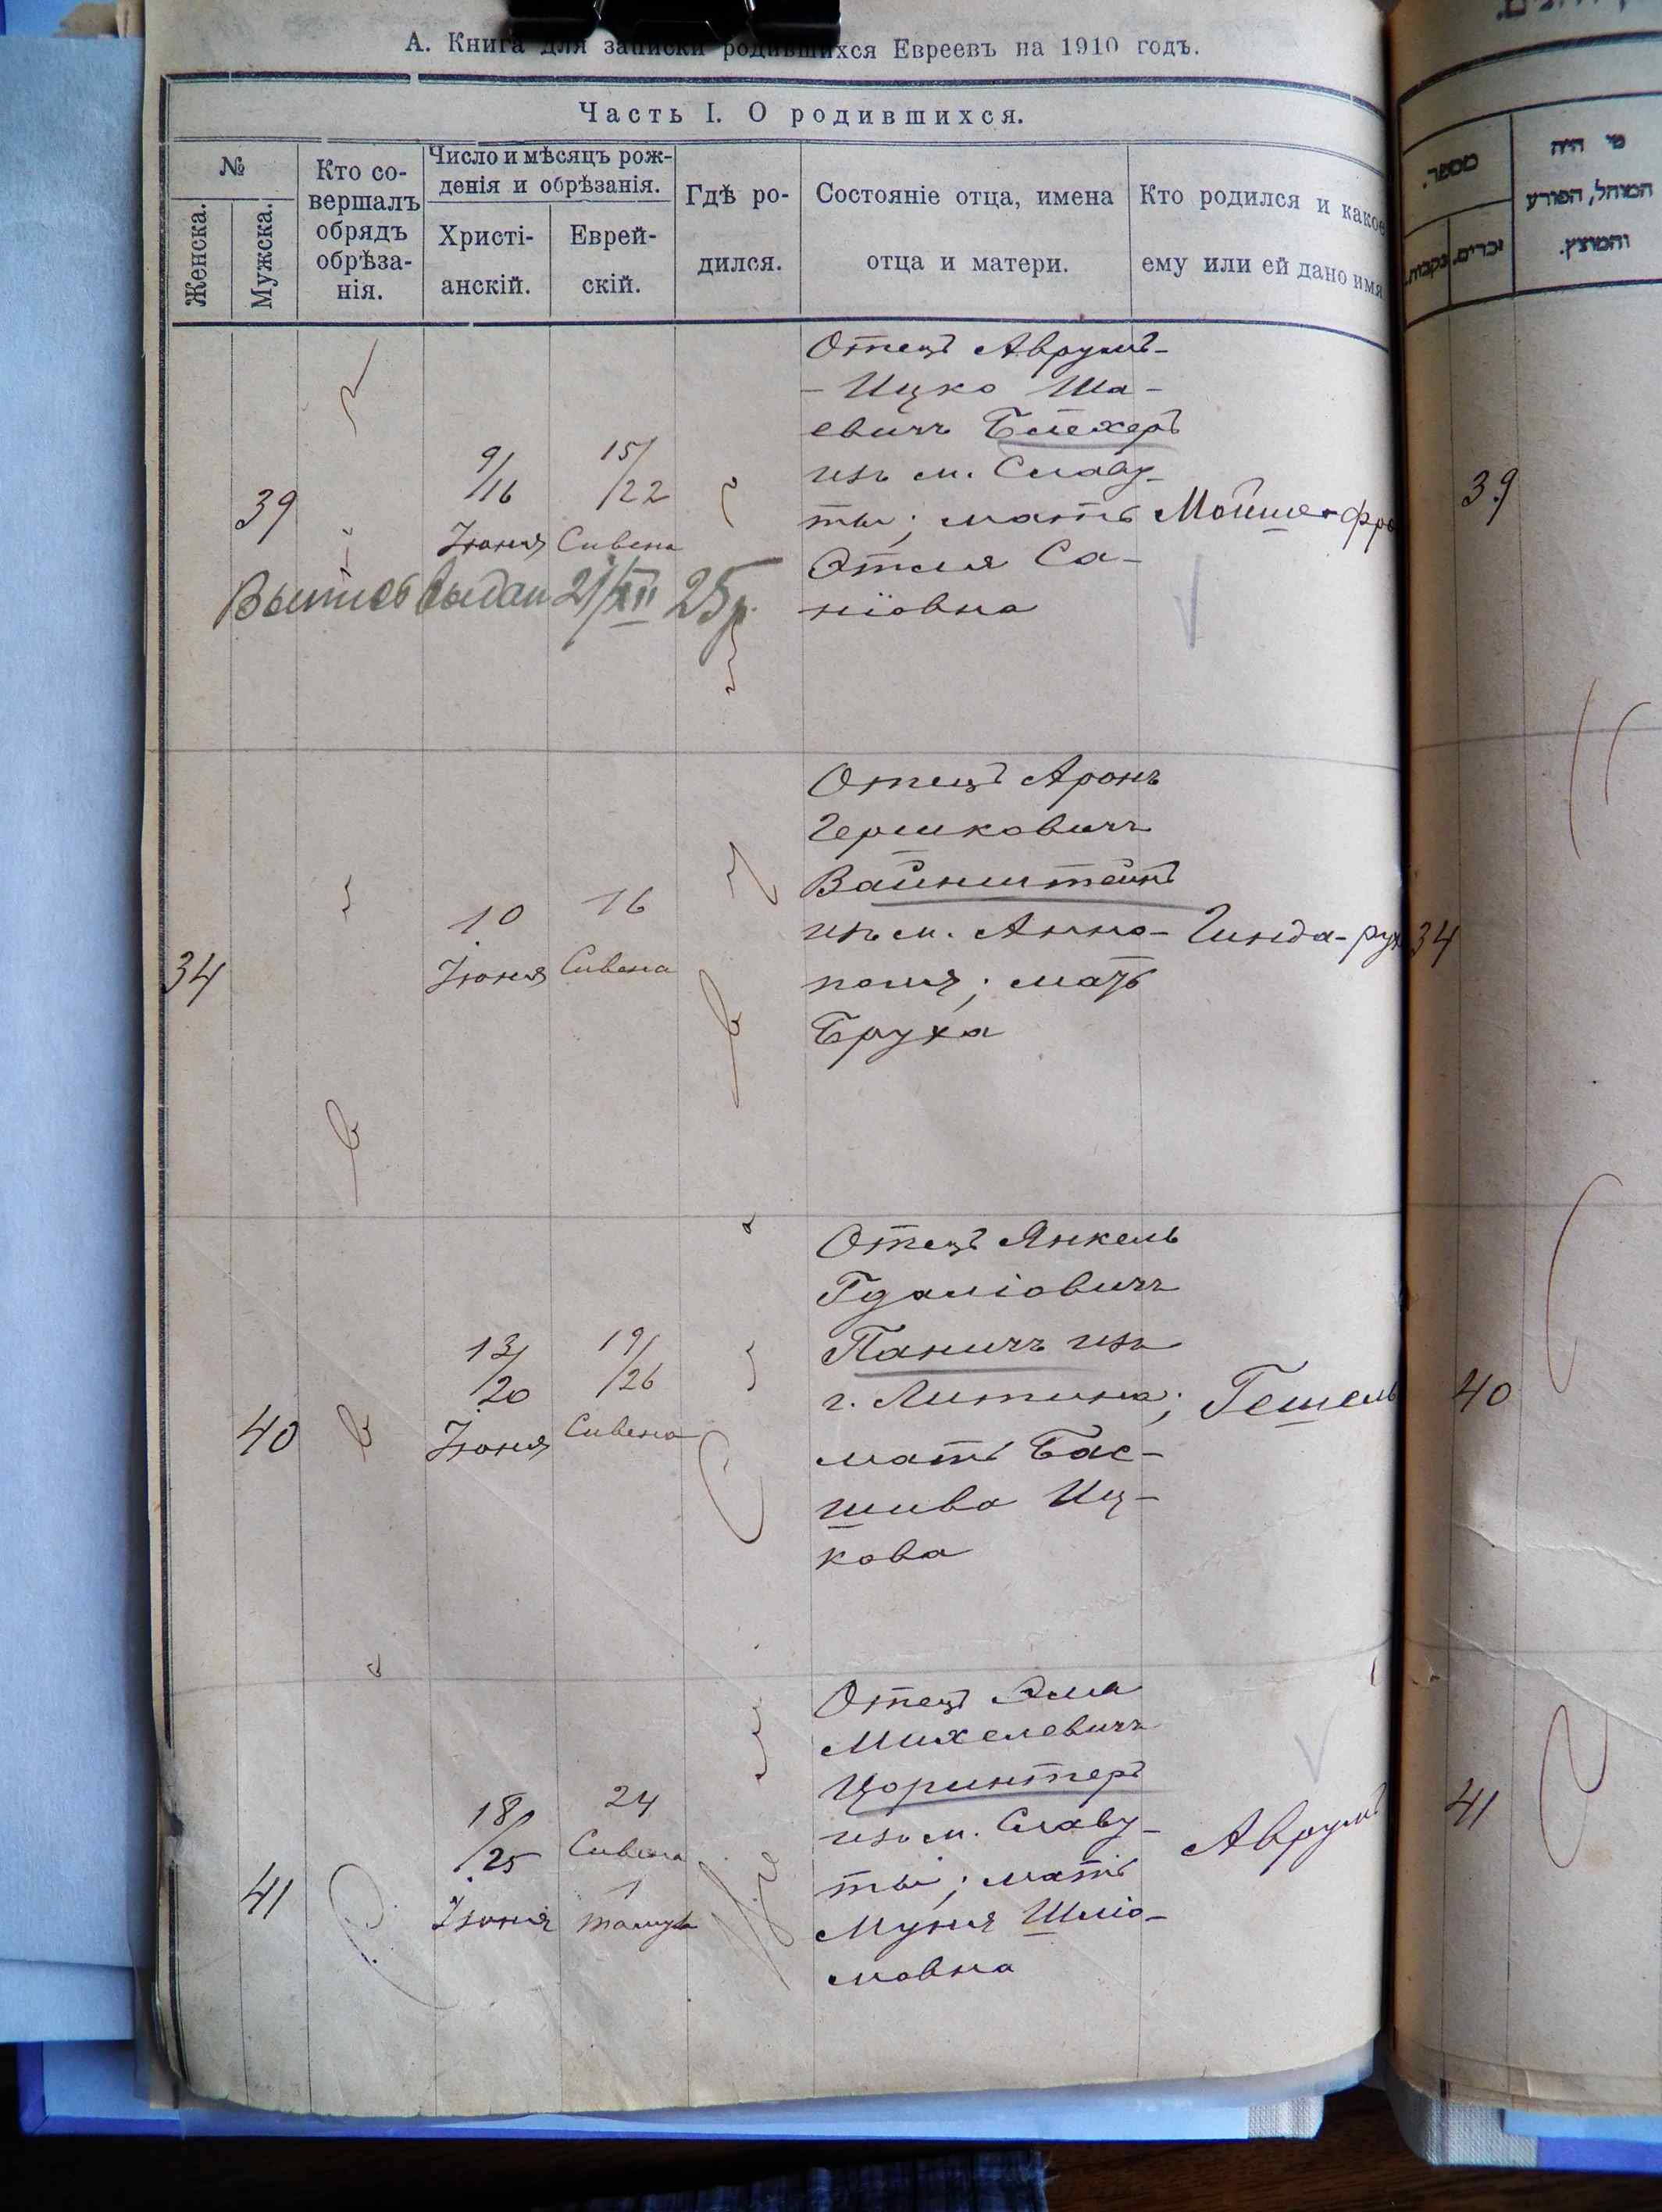 А. Книга для записки родившихся Евреевъ на 1910 годъ.
Часть I. О родившихся.
№
Женска.
Мужска.
Кто со-
вершалъ
обрядъ
обрѣза-
нія.
Число и мѣсяцъ рож-
денія и обрѣзанія.
Христі-
анскій.
Еврей-
скій.
Гдѣ ро-
дился.
Состояніе отца, имена
отца и матери.
Кто родился и какое
ему или ей дано имя
39
9/16
Іюня
15/22
Сивена
Отецъ Аврумъ-
- Ицко Ша-
евичъ Блехеръ
изъ м. Славу-
ты; мать
Этля Са-
ніовна
Мойше-Фро
Выпись выдан 21/XII 25 г.
34
10
Іюня
16
Сивена
Отецъ Аронъ
Гершковичъ
Вайнштейнъ
изъ м. Анно-
поля; мать
Бруха
Гинда-Рух
40
13/20
Іюня
19/26
Сивена
Отецъ Янкель
Гдаліовичъ
Паничъ изъ
г. Литина;
мать Бас-
шива Иц-
кова
Гешель
41
18/25
Іюня
24
Сивена
1
тамуза
Отецъ Зельма
Михелевичъ
Цоринтеръ
изъ м. Славу-
ты; мать
Муня Шліо-
мовна
Аврумъ
מספר.
נקבות.
זכרים.
מי היה
המוהל, הפורע
והמוצץ.
39
34
40
41